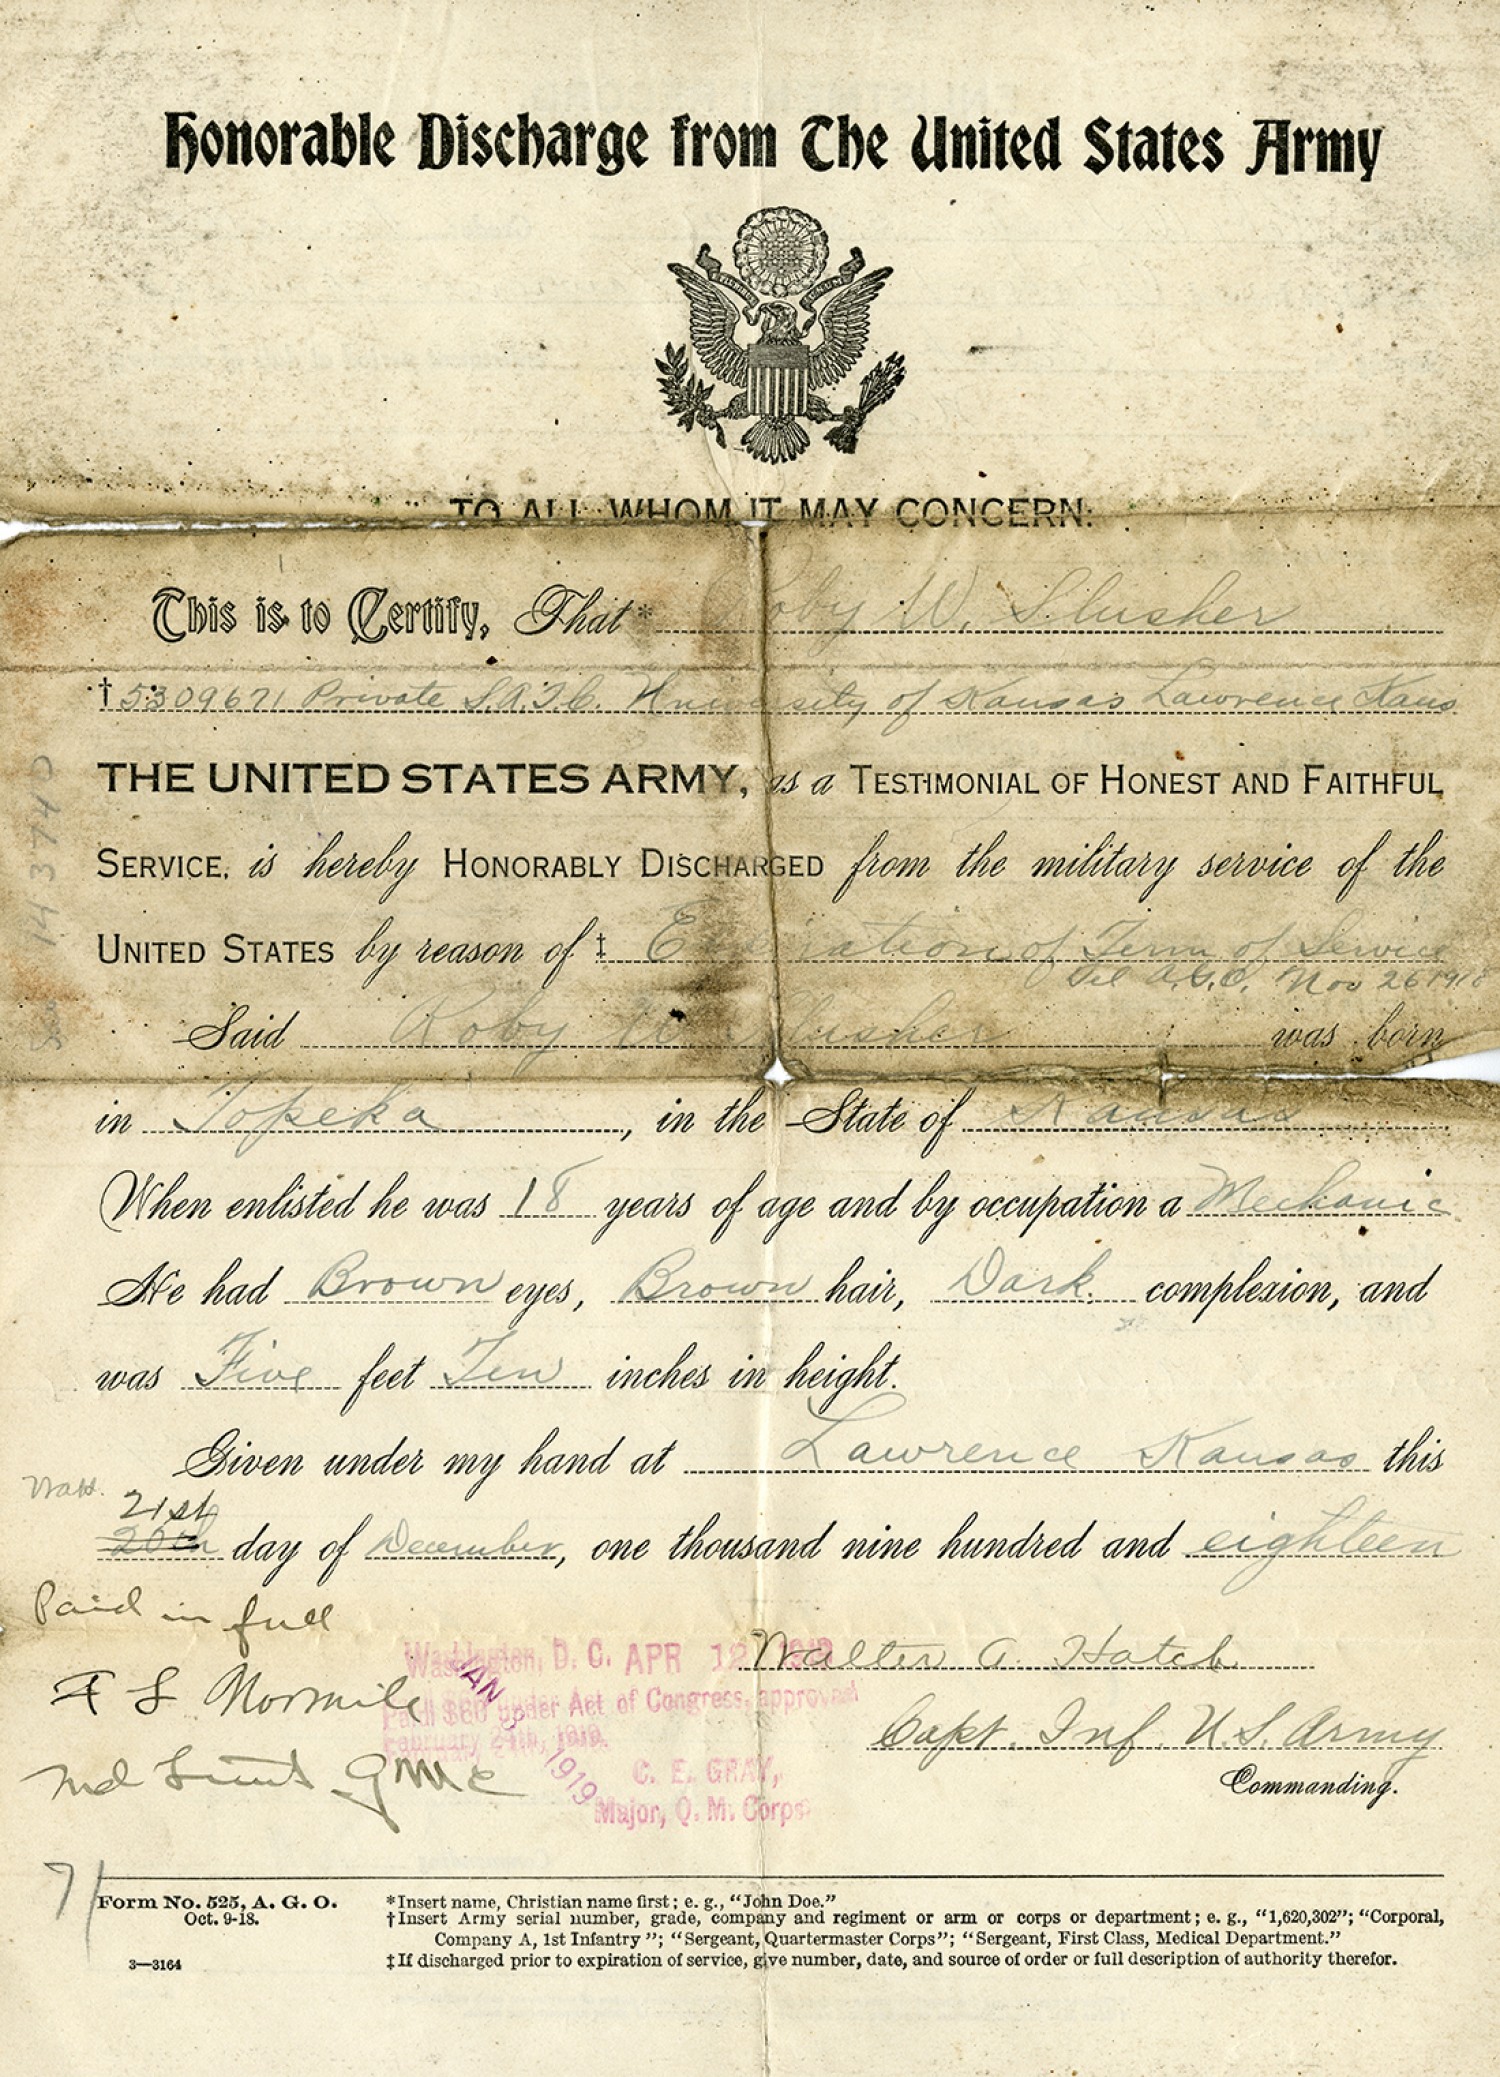 Honorable Discharge from The United States Army
TO ALL WHOM IT MAY CONCERN:
This is to Certify, That* Roby W. Slusher
†5309671 Private S.A.T.C. University of Kansas Lawrence Kans
THE UNITED STATES ARMY, as a TESTIMONIAL OF HONEST AND FAITHFUL
SERVICE, is hereby HONORABLY DISCHARGED from the military service of the
UNITED STATES by reason of ‡ Expiration of Term of Service
Tel A.G.O. Nov 26 1918
Said Roby W. Slusher was born
in Topeka, in the State of Kansas
When enlisted he was 18 years of age and by occupation a Mechanic
He had Brown eyes, Brown hair, Dark complexion, and
was Five feet Ten inches in height.
Given under my hand at Lawrence Kansas this
21st
20th day of December, one thousand nine hundred and eighteen
Paid in full
Walter A. Hatch
Washington, D. C. APR 12 1919
Paid $60 under Act of Congress, approved
February 24th, 1919.
C. E. GRAY,
Major, Q. M. Corps
JAN 3 1919
F S Normile
Capt. Inf. U.S. Army
2nd Lieut QMC
Commanding.
71
Form No. 525, A. G. O.
Oct. 9-18.
3—3164
*Insert name, Christian name first; e. g., "John Doe."
†Insert Army serial number, grade, company and regiment or arm or corps or department; e. g., "1,620,302"; "Corporal,
Company A, 1st Infantry"; "Sergeant, Quartermaster Corps"; "Sergeant, First Class, Medical Department."
‡If discharged prior to expiration of service, give number, date, and source of order or full description of authority therefor.
143740